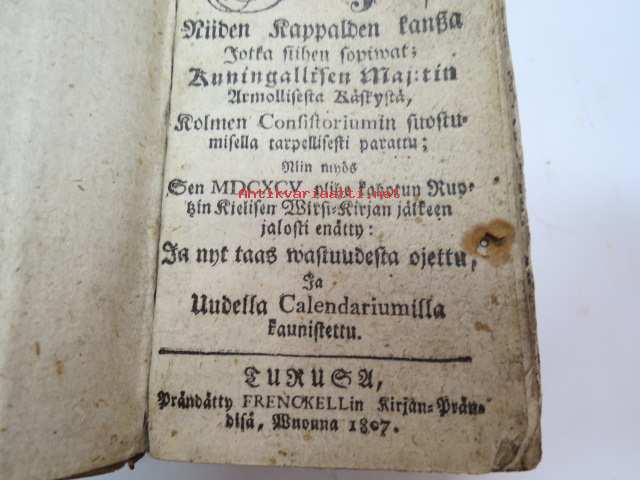 Niiden Kappalden kanßa
Jotka siihen sopiwat;
Kuningallisen Maj:tin
Armollisesta Käskystä,
Kolmen Consistoriumin suostu-
misella tarpellisesti parattu;
Niin myös
Sen MDCXCV ylihe kahotun Ruo-
tzin Kielisen Wirsi-Kirjan jälkeen
jalosti enätty:
Ja nyt taas wastuudesta ojettu,
Ja
Uudella Calendariumilla
kaunistettu.
TURUSA,
Prändätty FRENCKELLin Kirjan-Prän-
disä, Wuonna 1807.
Antikvariaatti.net